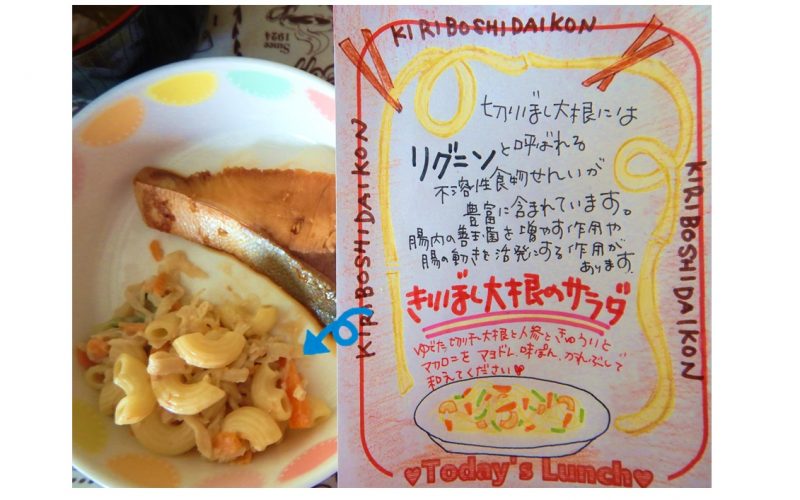 Since
1924
KIRIBOSHIDAIKON
KIRIBOSHIDAIKON
KIRIBOSHIDAIKON
切りぼし大根には
リグニンと呼ばれる
不溶性食物せんいが
豊富に含まれています。
腸内の善玉菌を増やす作用や
腸の動きを活発にする作用が
あります。
きりぼし大根のサラダ
ゆでた切り干し大根と人参ときゅうりと
マカロニをマヨドレ、味ぽん、かれぶしで
和えてください♥
♥Today's Lunch♥